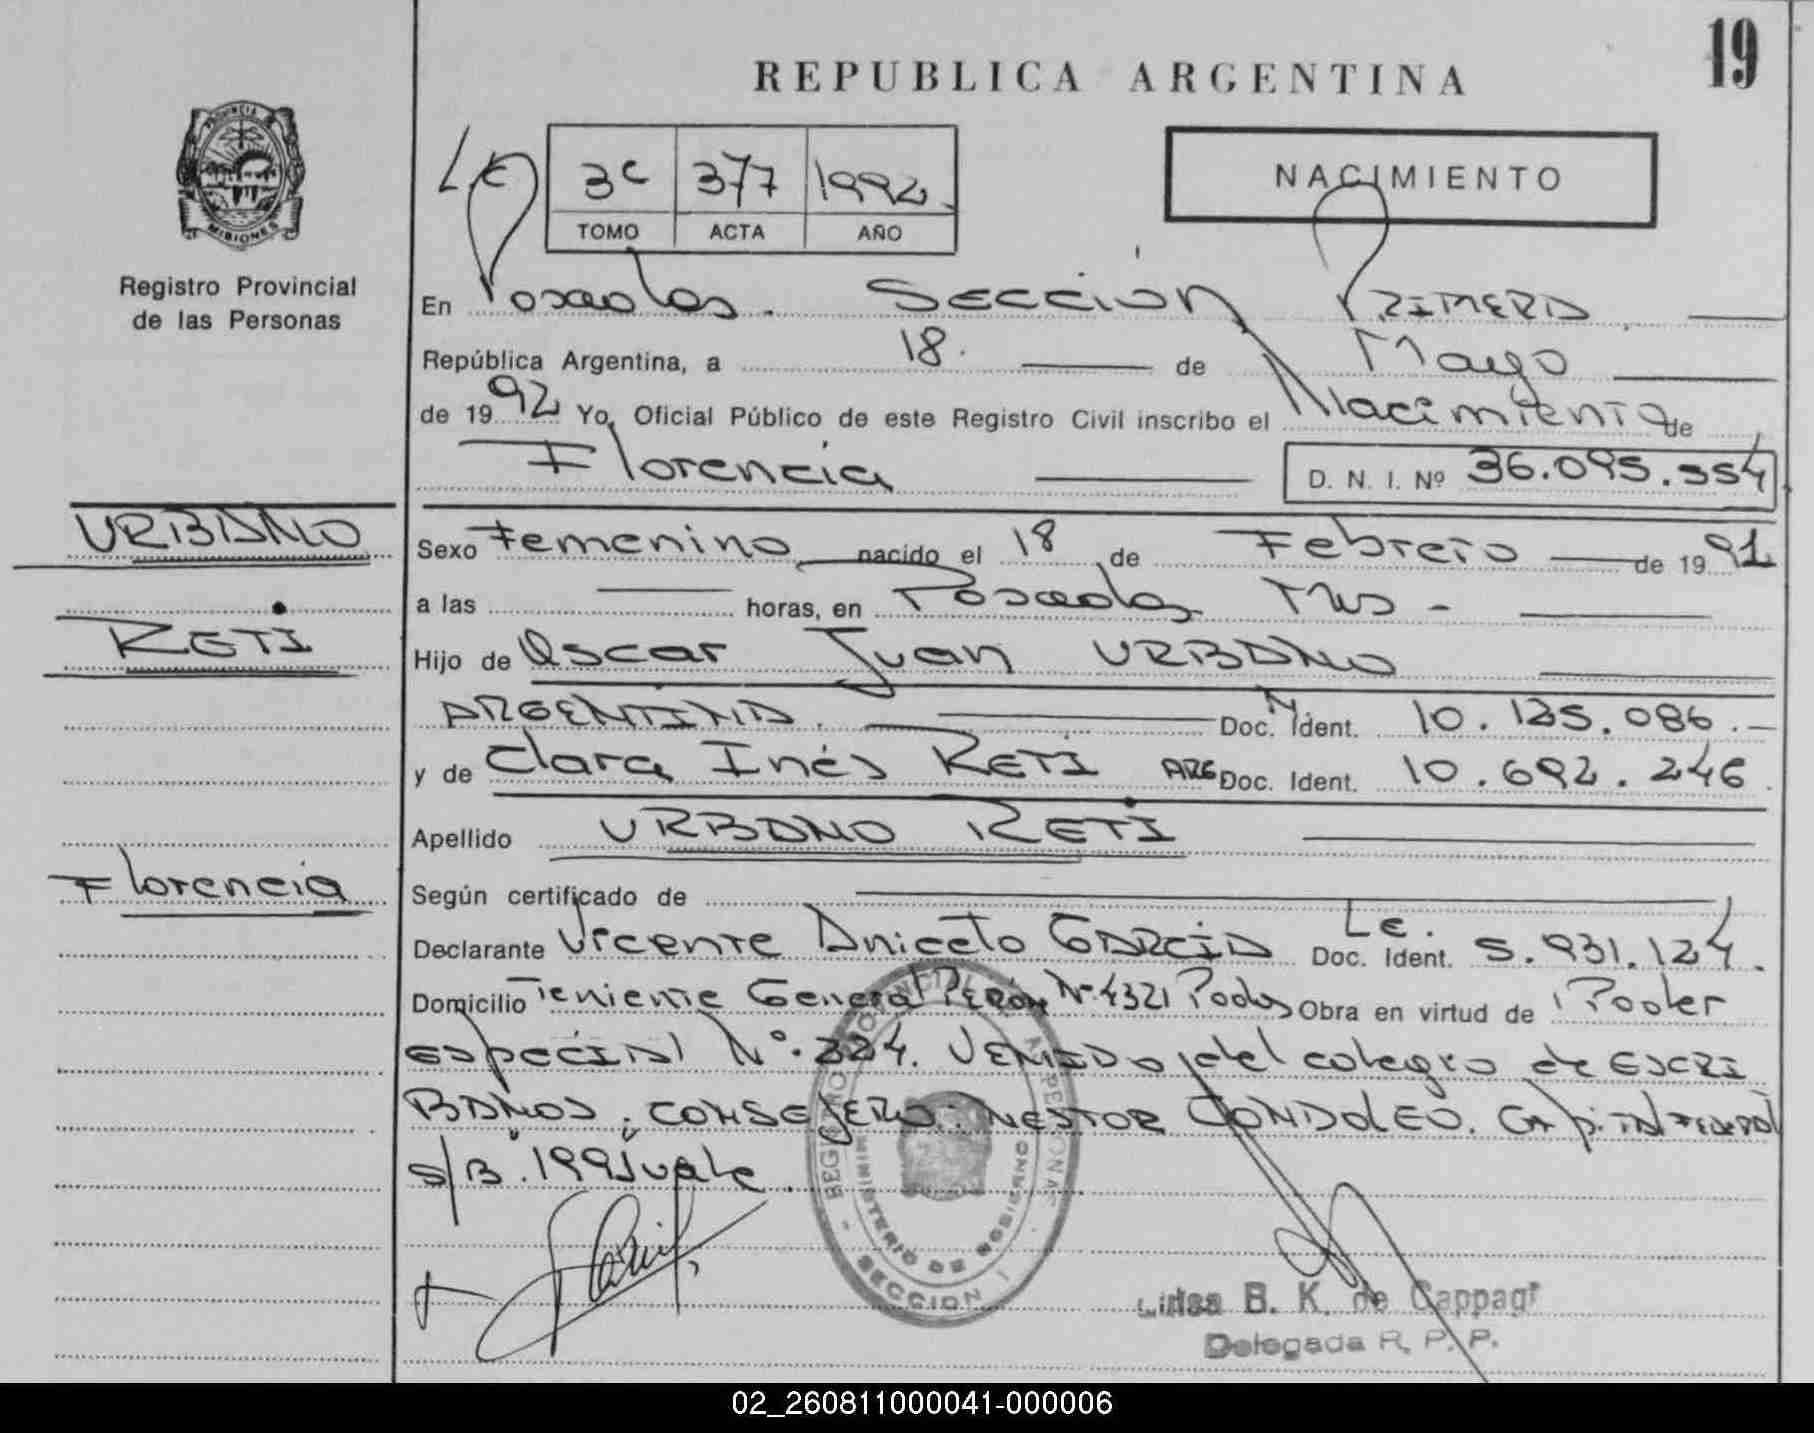 19
REPUBLICA ARGENTINA
PROVINCIA DE MISIONES
Registro Provincial
de las Personas
3c 377 1992.
TOMO ACTA AÑO
NACIMIENTO
En Posadas. Sección PRIMERA.
República Argentina, a 18. de Mayo
de 1992 Yo, Oficial Público de este Registro Civil inscribo el Nacimiento de
Florencia D. N. I. Nº 36.095.354
URBANO
RETI
Florencia
Sexo Femenino nacido el 18 de Febrero de 1991
a las horas, en Posadas Mns -
Hijo de Oscar Juan URBANO
ARGENTINA. Doc. Ident. 10.135.086.-
y de Clara Inés RETI ARG Doc. Ident. 10.692.246.
Apellido URBANO RETI
Según certificado de
Declarante Vicente Aniceto GARCIA L.E. Doc. Ident. 5.931.124.
Domicilio Teniente General PERON Nº 4321 Pdas Obra en virtud de Poder
especial Nº. 324. VENIDO del colegio de ESCRI
BANOS. CONSEJERO. NESTOR CONDOLEO. Capital Federal
S/B. 1991 vale.
REGISTRO PROVINCIAL DE LAS PERSONAS
MINISTERIO DE GOBIERNO
SECCION I
Luisa B. K. de
Delegada R. P. P.
02_260811000041-000006